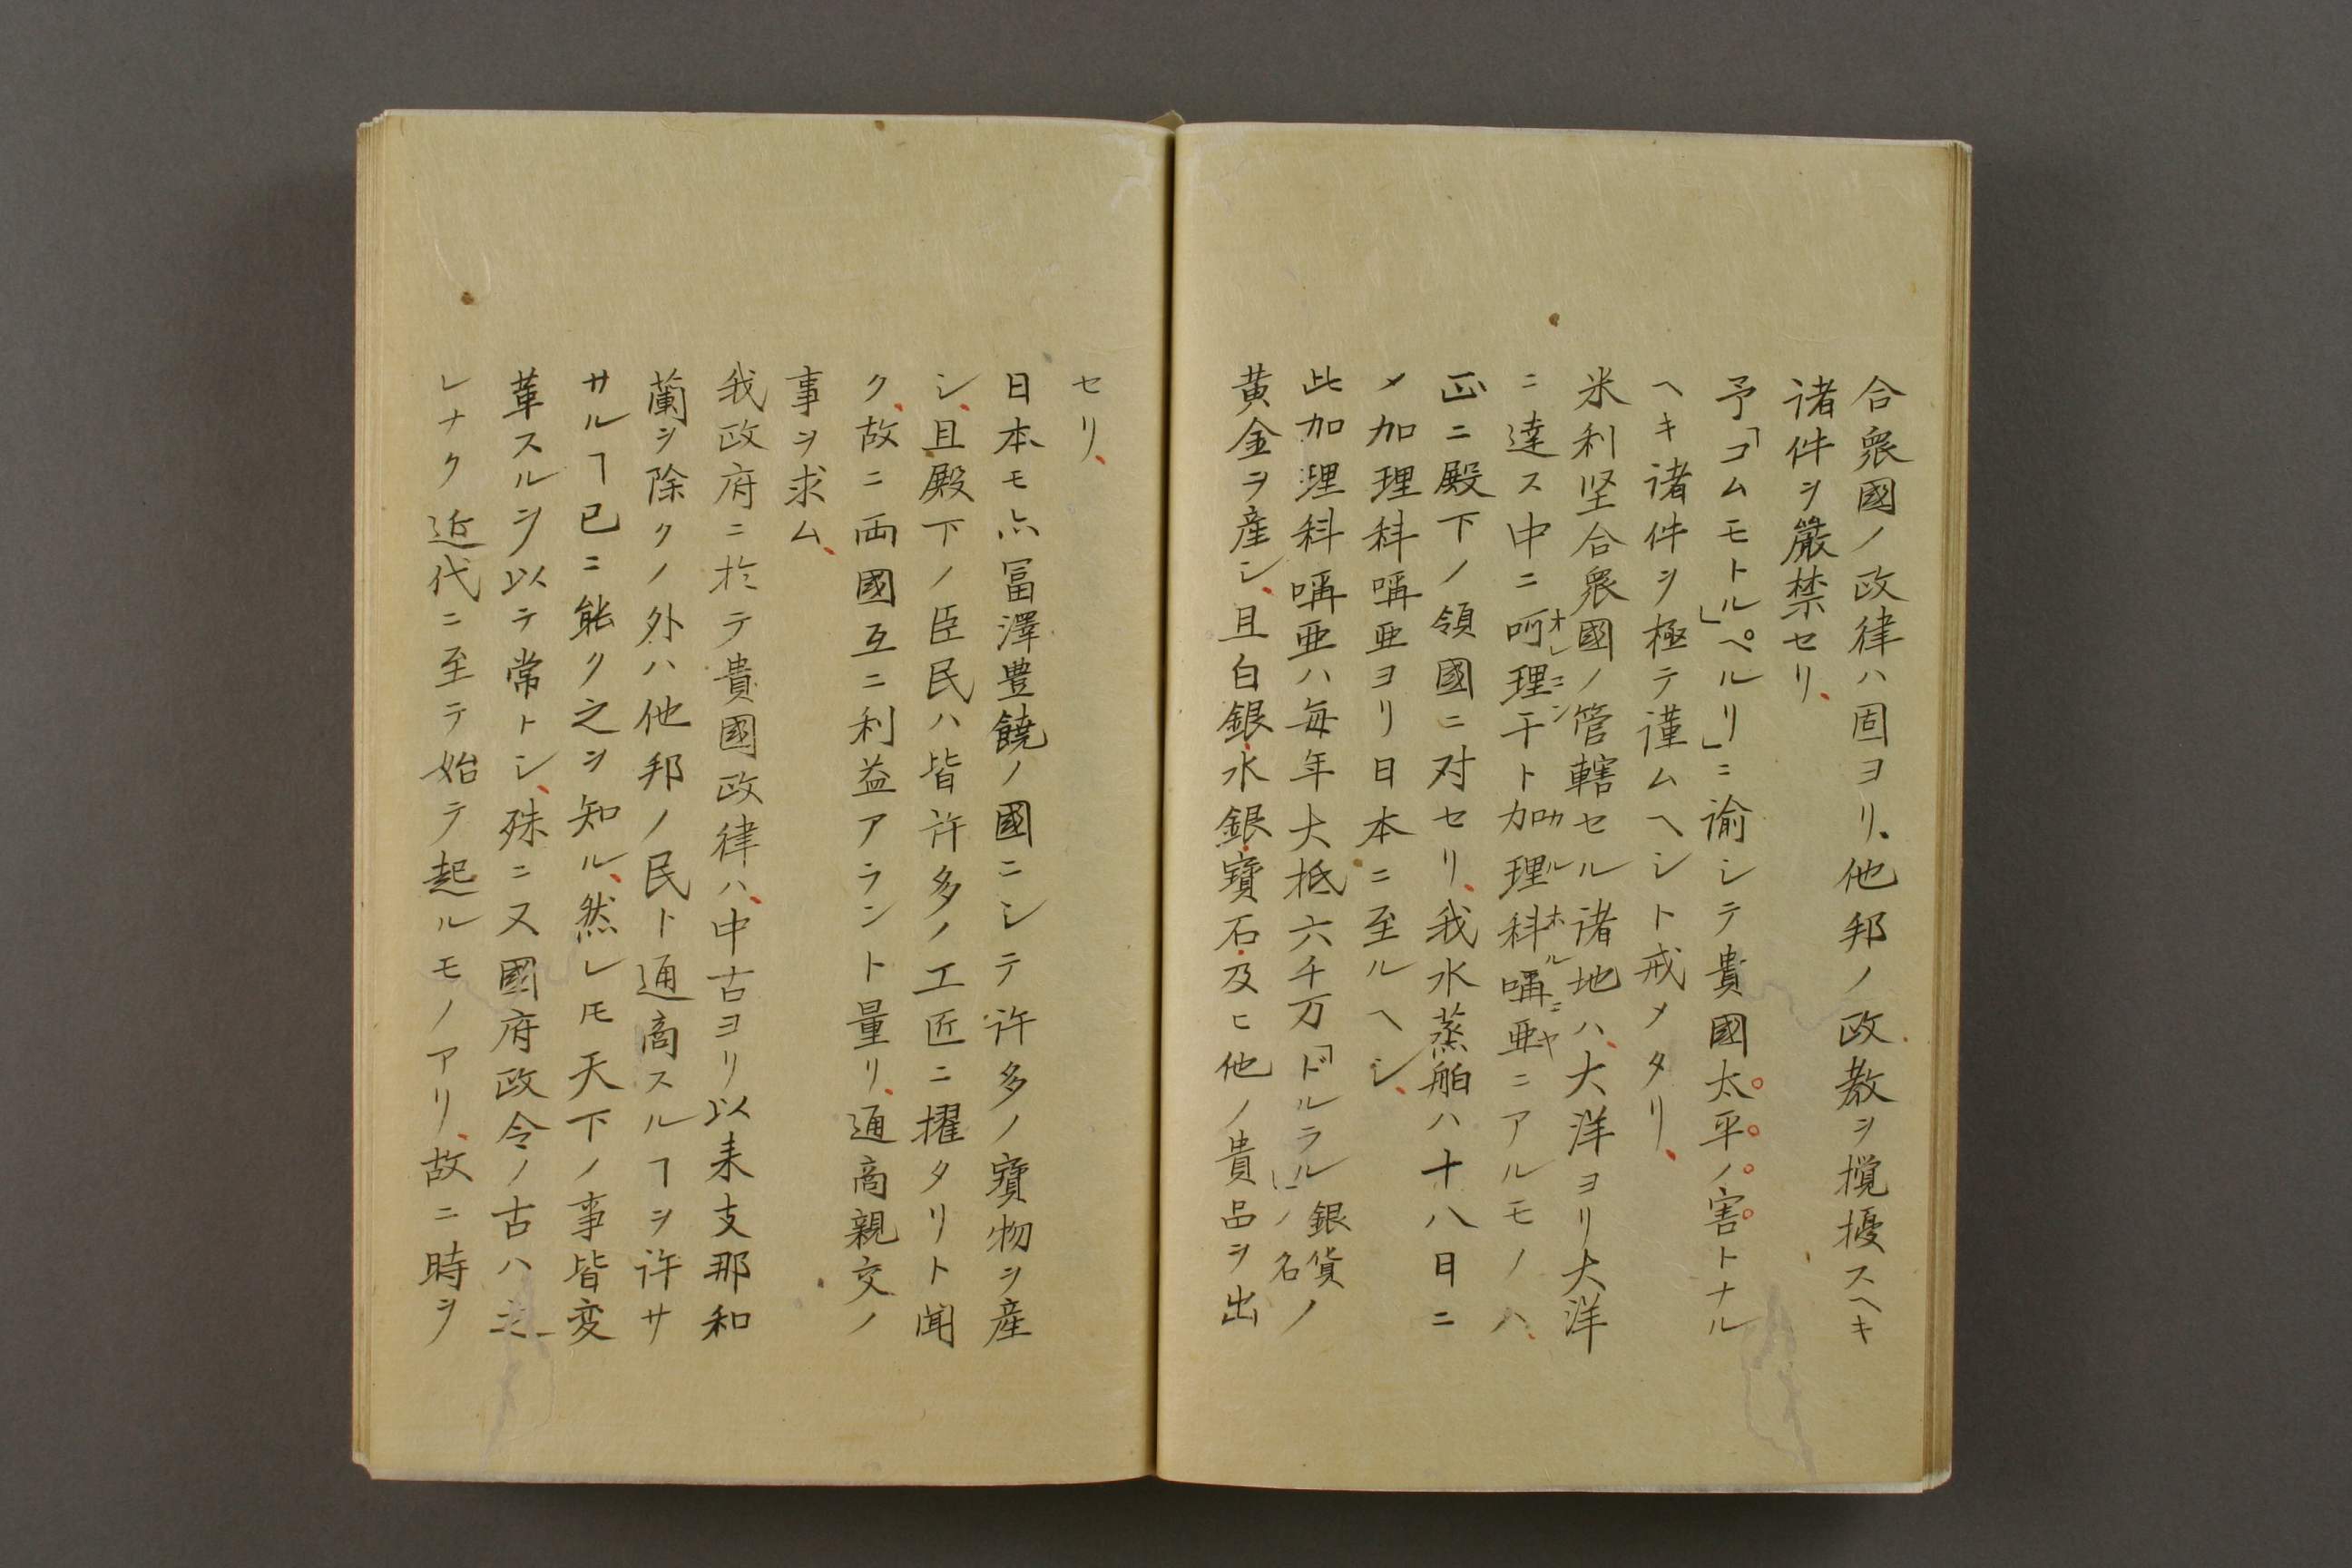 合衆國ノ政律ハ固ヨリ他邦ノ政教ヲ攪擾スヘキ
諸件ヲ嚴禁セリ、
予「コムモトル」ペルリ」ニ諭シテ貴國太平ノ害トナル
ヘキ諸件ヲ極テ謹ムヘシト戒メタリ、
米利堅合衆國ノ管轄セル諸地ハ、大洋ヨリ大洋
ニ達ス中ニ呵理干ト加理科嘺亜ニアルモノハ、
オレコン
カルホルニヤ
正ニ殿下ノ領國ニ対セリ、我水蒸舶ハ十八日ニ
メ加理科嘺亜ヨリ日本ニ至ルヘシ、
此加理科嘺亜ハ毎年大抵六千万「ドルラル
銀貨ノ
ノ名
黄金ヲ産シ、且白銀水銀寶石及ヒ他ノ貴品ヲ出
セリ、
日本モ亦冨澤豊饒ノ國ニシテ許多ノ寶物ヲ産
シ、且殿下ノ臣民ハ皆許多ノ工匠ニ擢タリト聞
ク、故ニ両國互ニ利益アラント量リ、通商親交ノ
事ヲ求ム、
我政府ニ於テ貴國政律ハ、中古ヨリ以来支那和
蘭ヲ除クノ外ハ他邦ノ民ト通商スルヿヲ許サ
サルヿ已ニ能ク之ヲ知ル、然レ𪜈天下ノ事皆変
革スルヲ以テ常トシ、殊ニ又國府政令ノ古ハ之
レナク近代ニ至テ始テ起ルモノアリ、故ニ時ヲ